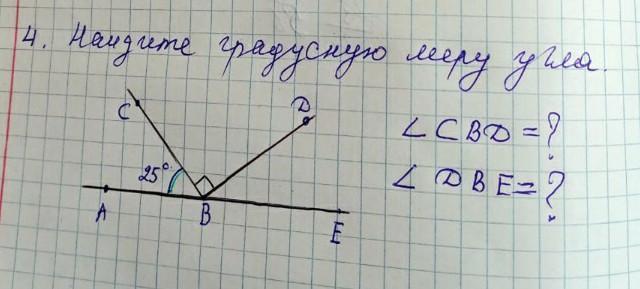 4. Найдите градусную меру угла.
C
D
∠CBD=?
25°
∠DBE=?
A
B
E